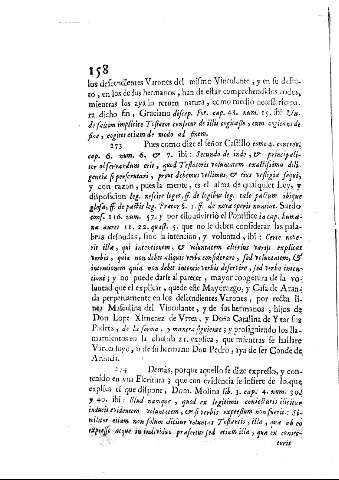 158
los descendientes Varones del mismo Vinculante, y en su defecto
, en los de sus hermanos, han de estar comprehendidos todos,
mientras los aya la rerum natura, como medio necessario para
dicho fin, Graciano discep. For. cap. 42. num. 15. ibi Unde
sicum implicite Testator censetur de illis cogitasse, cum cogitans de
fine, cogitet etiam de modo ad finem.
273 Pues como dize el señor Castillo tomo 2. controv.
cap. 6. num. 6. & 7. ibi: Secundo de inde, & principaliter
observandum erit, quod Testatoris voluntatem exactissima diligentia
si perscrutari, prout debemus vellimus, & eius vestigia sequi,
y con razon, pues la mente, es el alma de qualquier Ley, y
disposicion leg. scire leges. ff. de legibus leg. tale pactum ibique
glossa, ff. de pactis leg. Prator §. 1. ff. de nova operis nunciat. Surdo
cons. 116. num. 57. y por ello advirtió el Pontifice in cap. humanæ
aures 11. 22. quæst. 5. que no se deben considerar las palabras
desnudas, sino la intencion, y voluntad, ibi: Certe noverit
illa, qui intentionem, & voluntatem alterius variis explicat
verbis, quia non debet aliquis verba considerare, sed voluntatem, &
intentionem quia non debet intentio verbis deservire, sed verba intentioni;
y no puede darse al parecer, mayor congetura de la voluntad
que el explicar, quede este Mayorazgo, y Casa de Aranda
perpetuamente en los descendientes Varones, por recta linea
Masculina del Vinculante, y de sus hermanos, hijos de
Don Lope Ximenez de Urrea, y Doña Catalina de Yxar sus
Padres, de la forma, y manera siguiente; y prosiguiendo los llamamientos
en la clausula 21. explica, que mientras se hallare
Varon suyo, ò de su hermano Don Pedro, aya de ser Conde de
Aranda.
274 Demàs, porque aquello se dize expresso, y contenido
en una Escritura; que con evidencia se infiere de lo que
explica el que dispone, Dom. Molina lib. 1. cap. 4. num. 30.
y 40. ibi: Illud namque, quod ex legitimis coniecturis elicitur
inducit evidentem voluntatem, & si verbis expressum non fuerit: Similiter
etiam non solum dicitur voluntas Testatoris, illa, quæ ab eo
expresse atque in individuo profertur sed etiam illa, quæ ex coniecturis